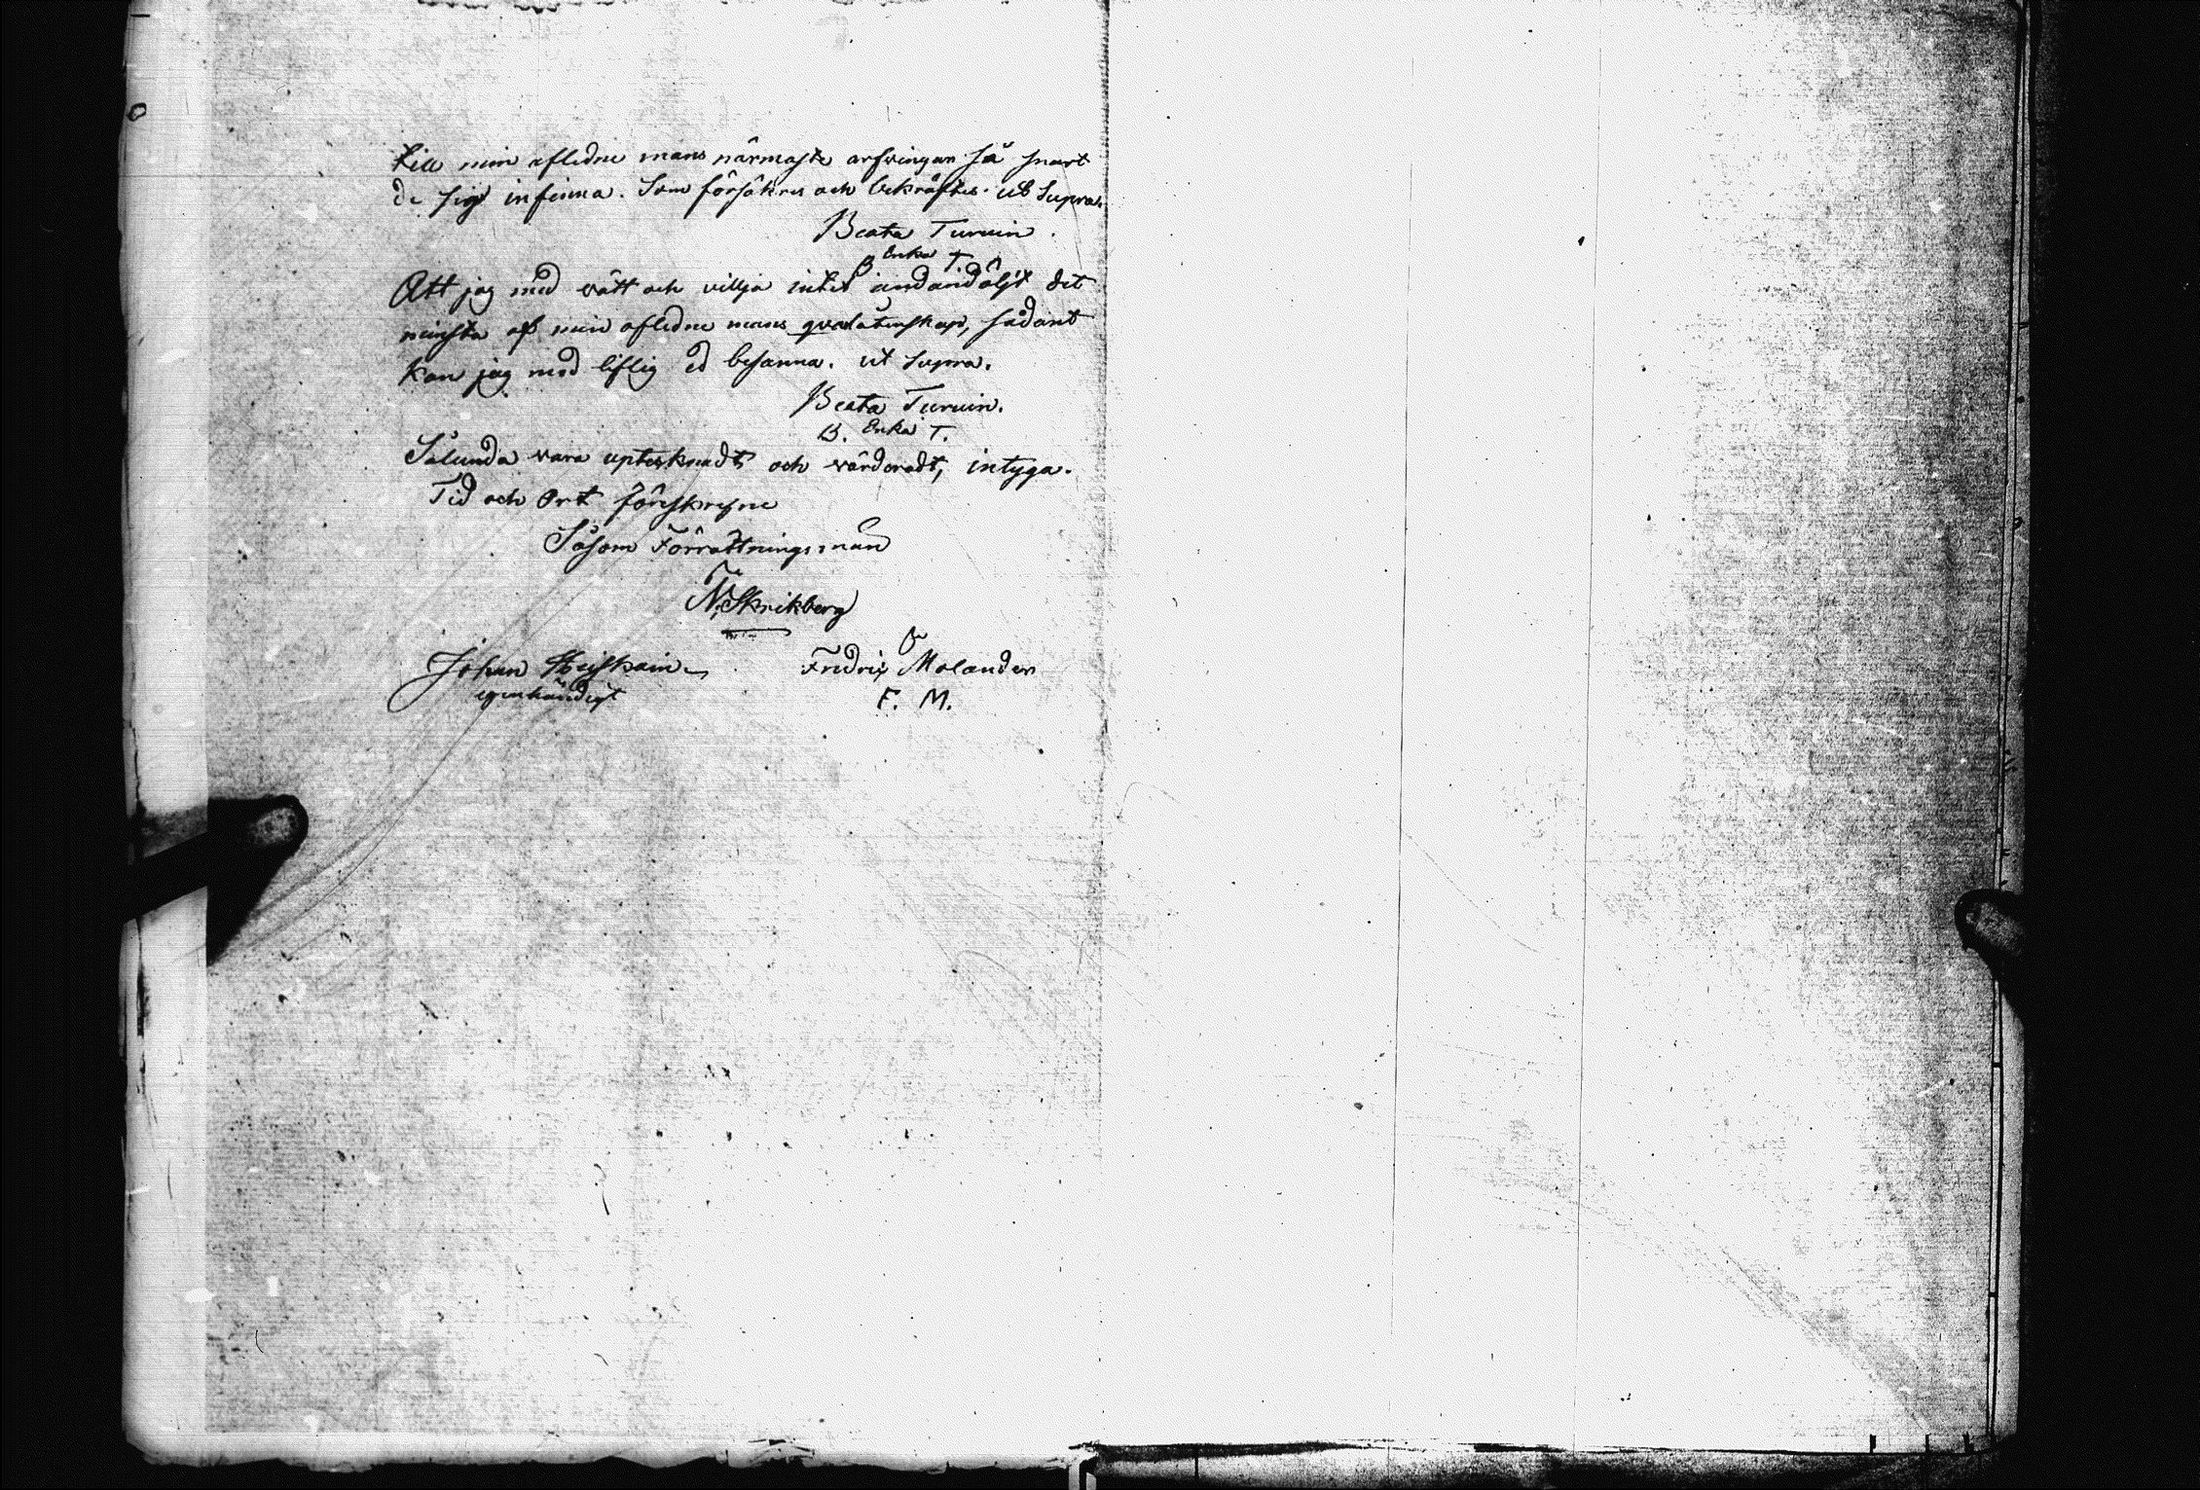 till min aflidne mans närmaste arfvingar så snart
de sig infinna. Som försäkras och bekräftes. ut Supra.
Beata Turuin.
B. Enka T.
Att jag med vått och vilja intet undandöljt det
minsta af min aflidne mans qvarlåtenskap, sådant
kan jag med liflig ed besanna. ut Supra.
Beata Turuin.
B. Enka T.
Sålunda vara uptecknadt, och värderadt, intyga.
Tid och Ort föreskrefne
Såsom Förrättningsmän
N. Skrikberg
Johan
Fredric Molander
egenhändigt
F. M.